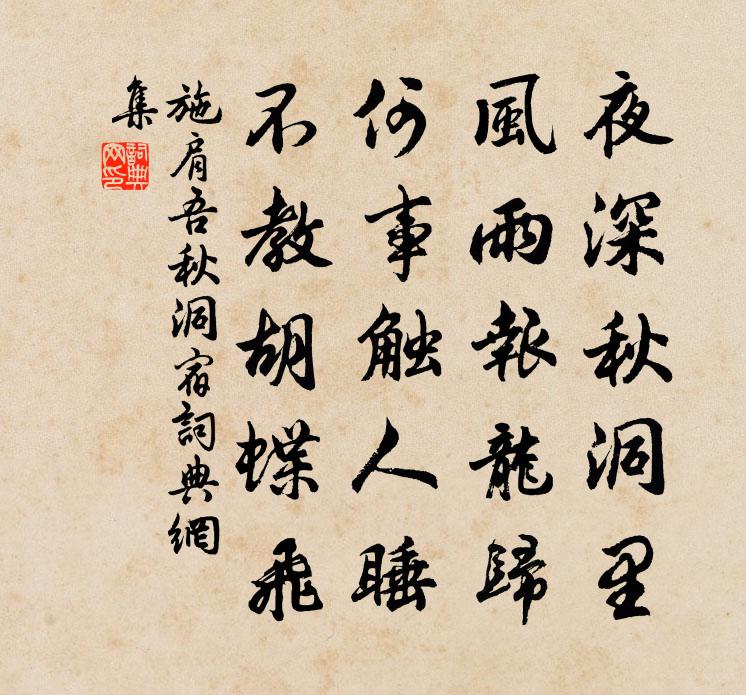 夜深秋洞里
風雨報龍歸
何事触人睡
不教胡蝶飛
施肩吾秋洞宿詞典網
集
詞典網印